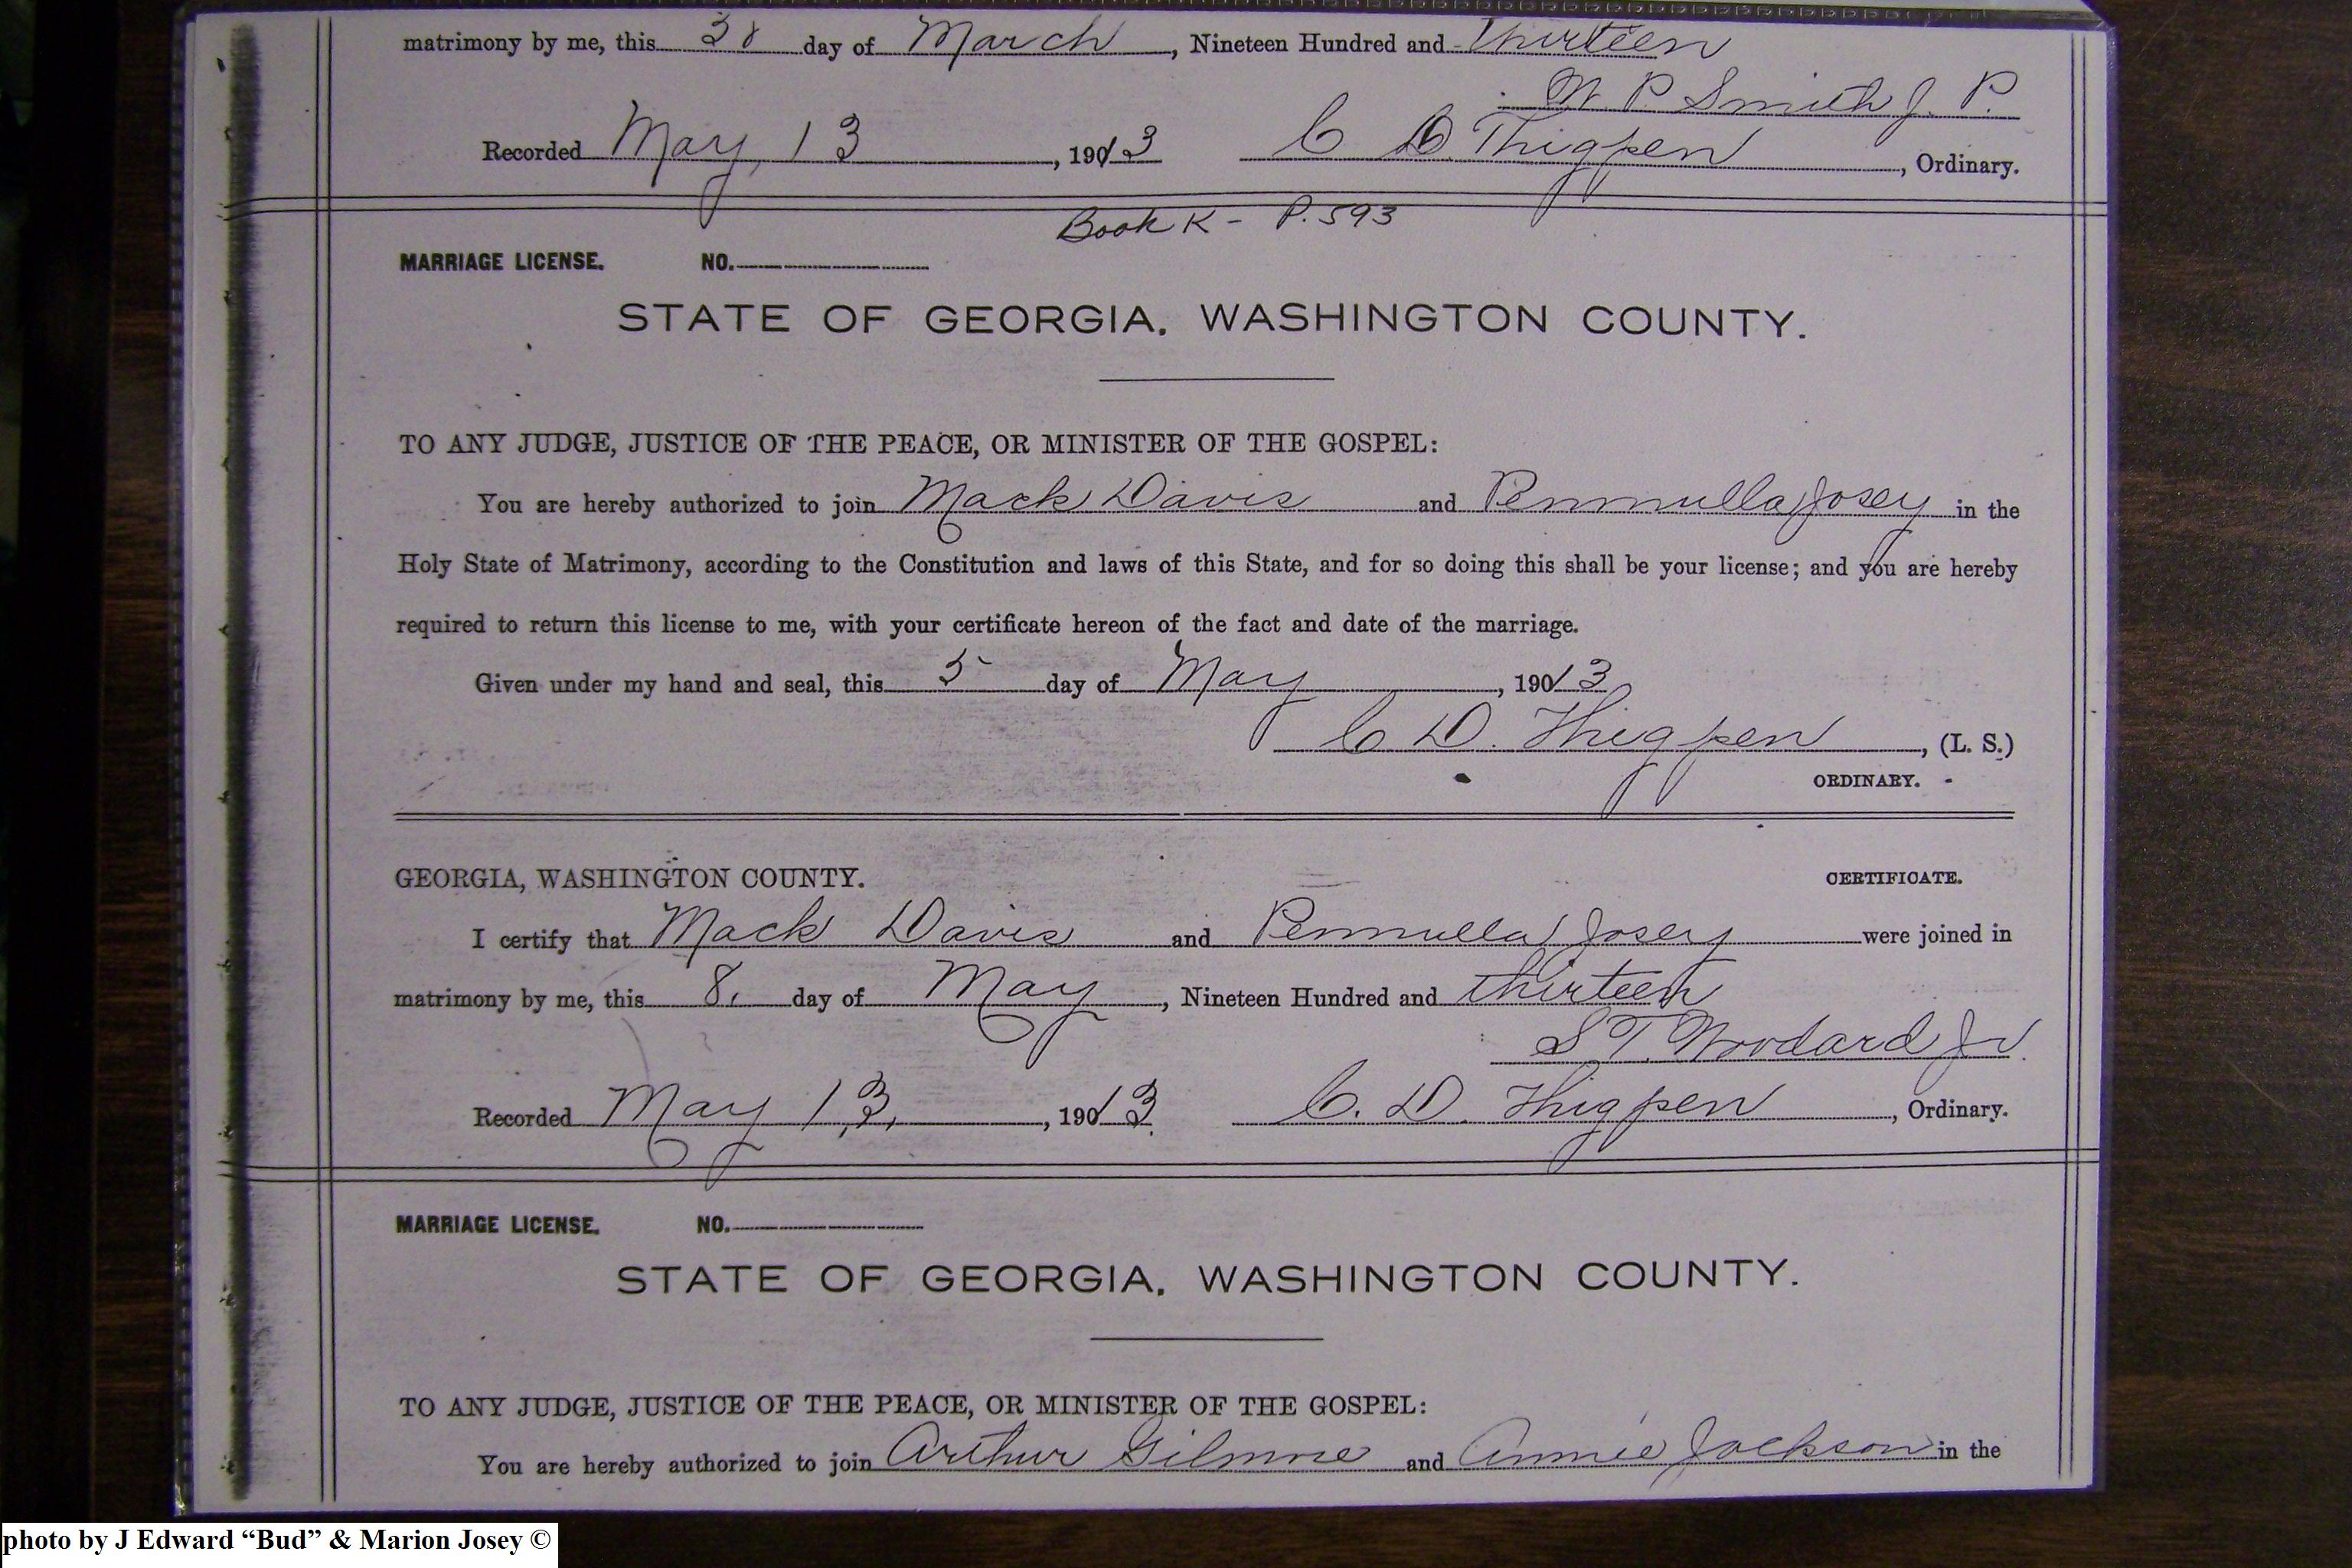 matrimony by me, this 30 day of March, Nineteen Hundred and Thirteen
W. P. Smith J. P.
Recorded May, 13, 1913 C D. Thigpen, Ordinary.
Book K - P. 593
MARRIAGE LICENSE. NO.
STATE OF GEORGIA, WASHINGTON COUNTY.
TO ANY JUDGE, JUSTICE OF THE PEACE, OR MINISTER OF THE GOSPEL:
You are hereby authorized to join Mack Davis and Penmulla Josey in the
Holy State of Matrimony, according to the Constitution and laws of this State, and for so doing this shall be your license; and you are hereby
required to return this license to me, with your certificate hereon of the fact and date of the marriage.
Given under my hand and seal, this 5 day of May, 1913
C D. Thigpen, (L. S.)
ORDINARY.
GEORGIA, WASHINGTON COUNTY. CERTIFICATE.
I certify that Mack Davis and Penmulla Josey were joined in
matrimony by me, this 8, day of May, Nineteen Hundred and thirteen
S T. Woodard Jr.
Recorded May 13, 1913. C. D. Thigpen, Ordinary.
MARRIAGE LICENSE. NO.
STATE OF GEORGIA, WASHINGTON COUNTY.
TO ANY JUDGE, JUSTICE OF THE PEACE, OR MINISTER OF THE GOSPEL:
You are hereby authorized to join Arthur Gilmore and Annie Jackson in the
photo by J Edward “Bud” & Marion Josey ©